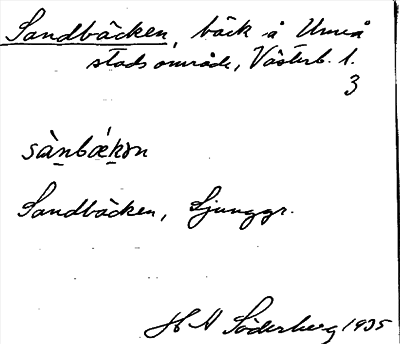 Sandbäcken, bäck å Umeå
stads område, Västerb. l.
3
sànbǽkən
Sandbäcken, Ljunggr.
H N Söderberg 1935